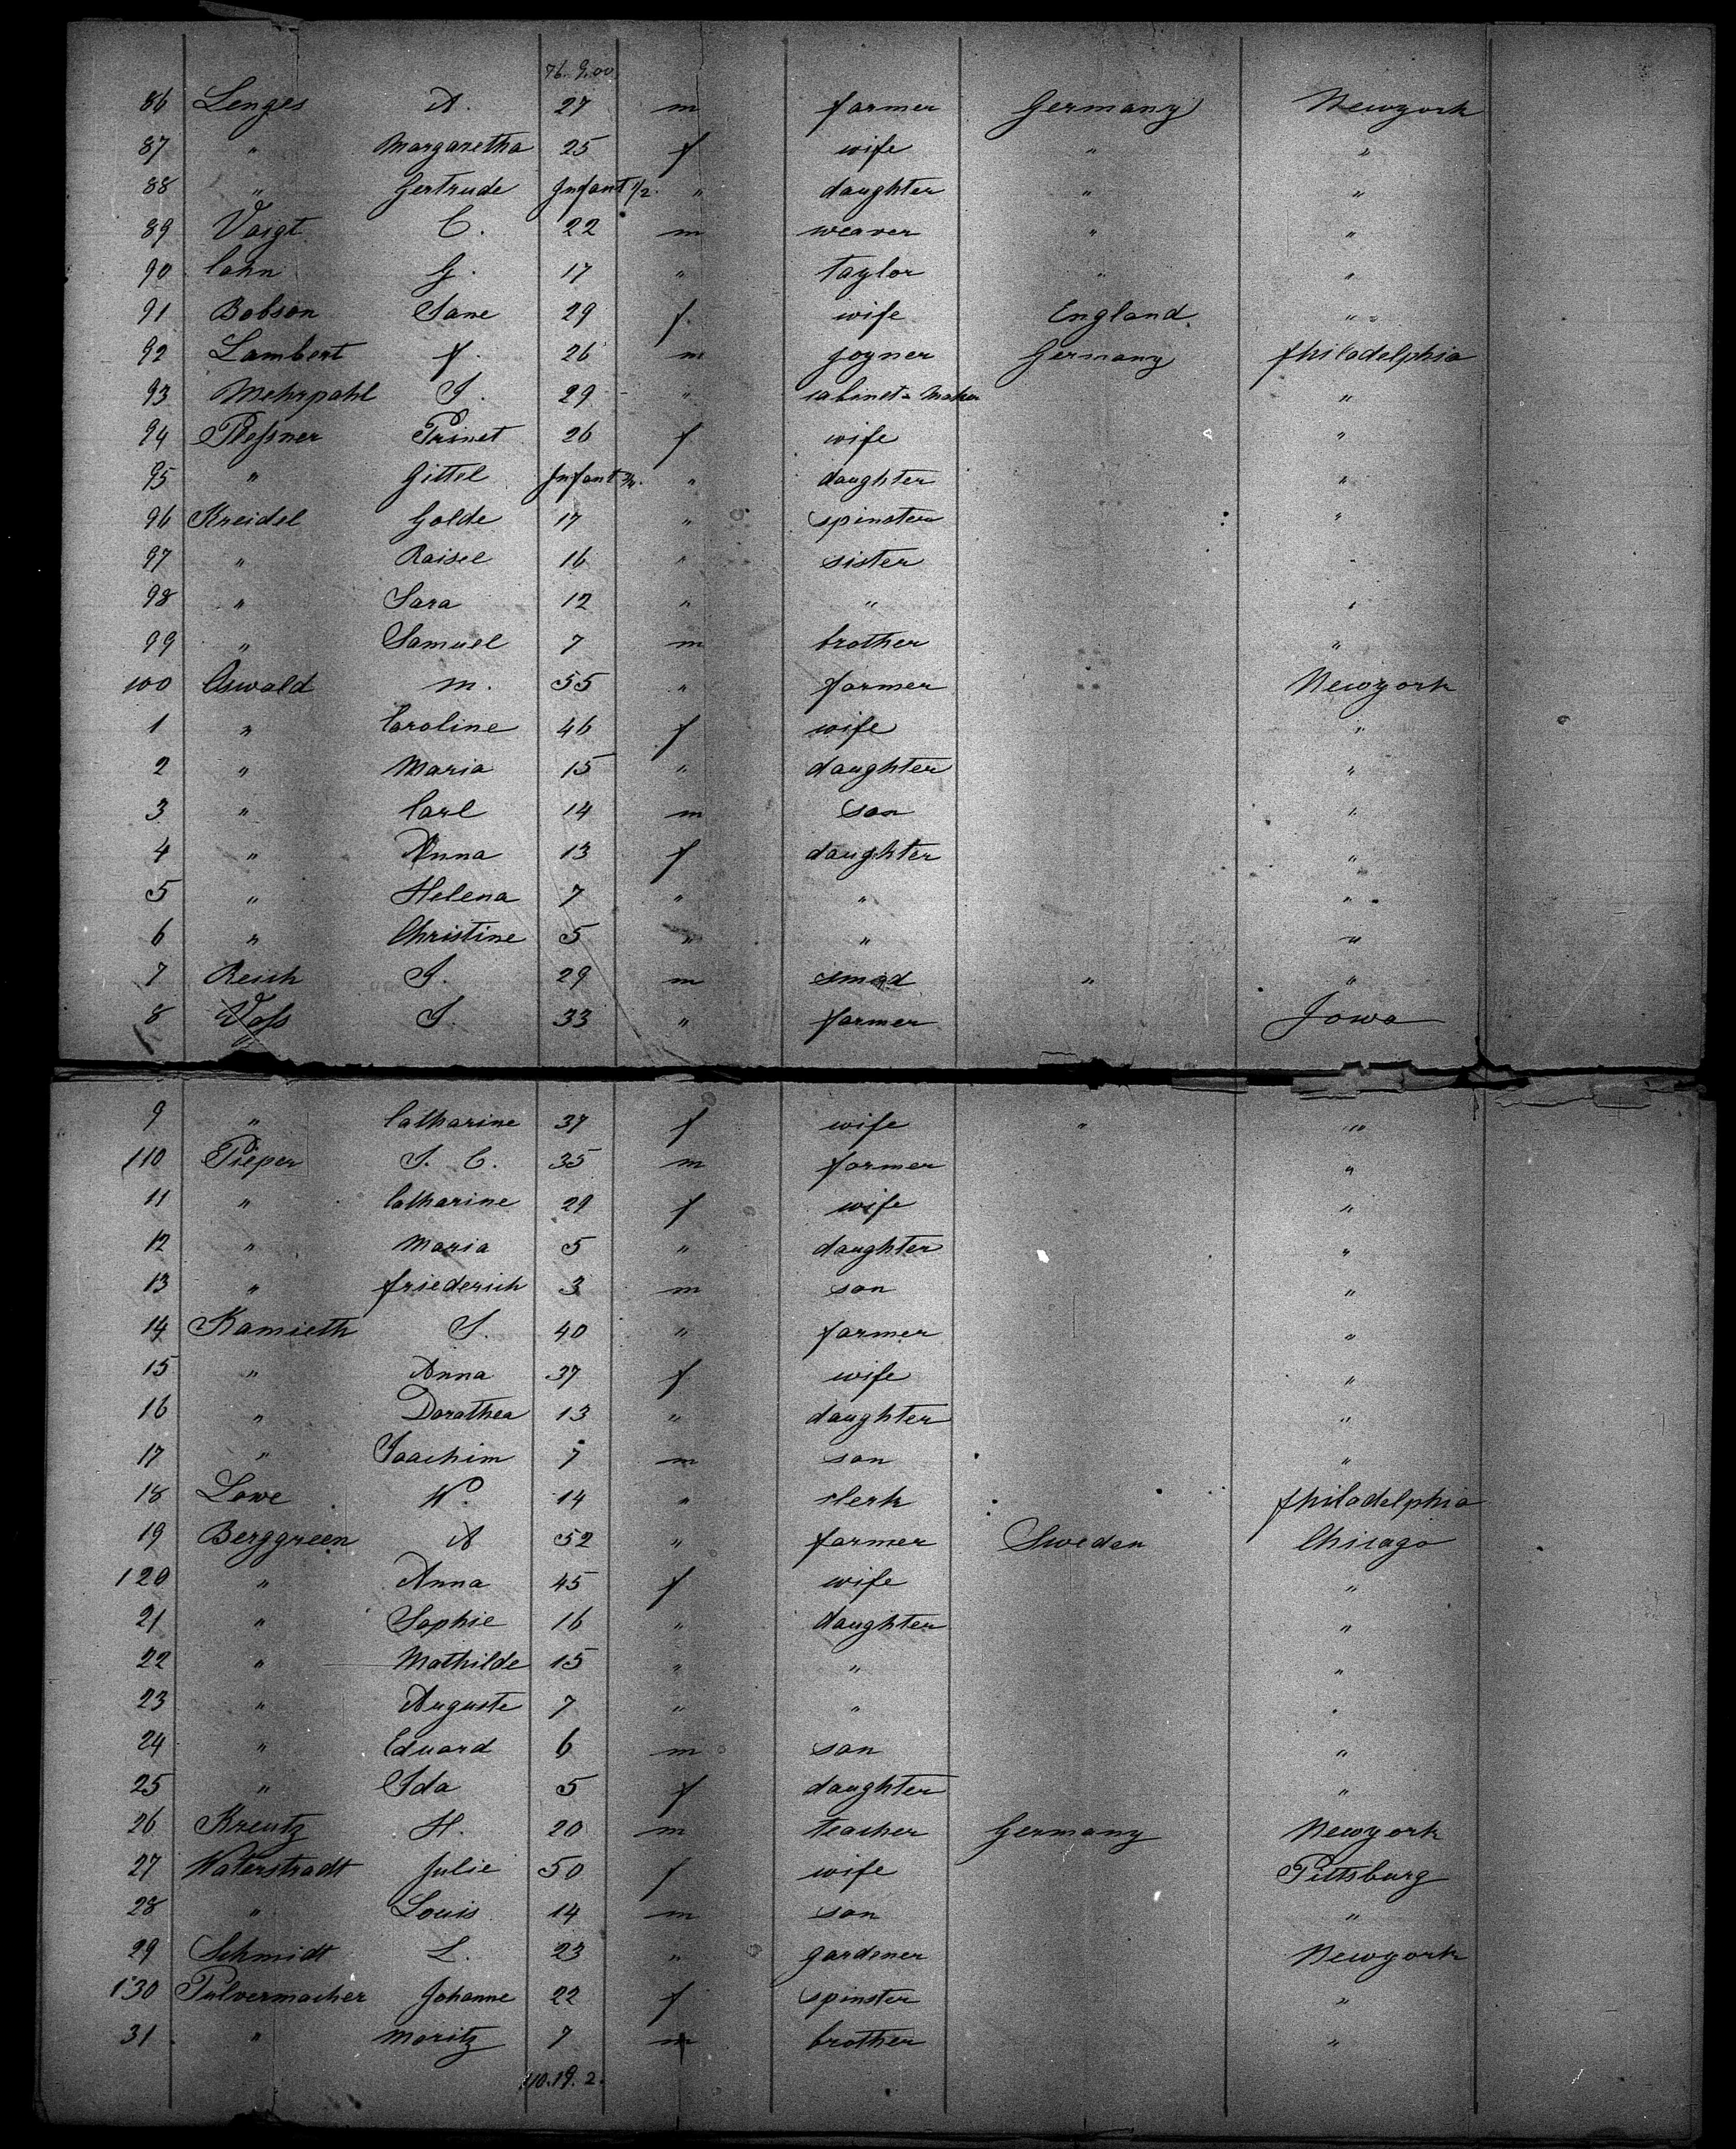 76. 9. 00
86 Lenges A. 27 m farmer Germany Newyork
87 " Margaretha 25 f wife " "
88 " Gertrude Infant 1/2. " daughter " "
89 Voigt C. 22 m weaver " "
90 Cohn G. 17 " taylor " "
91 Bobson Jane 29 f. wife England "
92 Lambert f. 26 m joyner Germany philadelphia
93 Mehrpahl J. 29 " cabinet = Maker "
94 Plessner Prinet 26 f wife "
95 " Gittel Infant " daughter "
96 Kreidel Golde 17 " spinster "
97 " Raisel 16 " sister "
98 " Sara 12 " " "
99 " Samuel 7 m brother "
100 Oswald m. 55 " farmer Newyork
1 " Caroline 46 f wife "
2 " Maria 15 " daughter "
3 " Carl 14 m son "
4 " Anna 13 f daughter "
5 " Helena 7 " " "
6 " Christine 5 " " "
7 Reich J. 29 m " "
8 Voss J. 33 " farmer Iowa
9 " Catharine 37 f wife " "
110 Pieper J. C. 35 m farmer "
11 " Catharine 29 f wife "
12 " Maria 5 " daughter "
13 " friederich 3 m son "
14 Kamieth J. 40 " farmer "
15 " Anna 37 f wife "
16 " Dorathea 13 " daughter "
17 " Joachim 7 m son "
18 Lowe W. 14 " clerk philadelphia
19 Berggreen A 52 " farmer Sweden Chicago
120 " Anna 45 f wife "
21 " Sophie 16 " daughter "
22 " Mathilde 15 " " "
23 " Auguste 7 " " "
24 " Eduard 6 m son "
25 " Ida 5 f daughter "
26 Kreutz H. 20 m teacher Germany Newyork
27 Waterstradt Julie 50 f wife Pittsburg
28 " Louis 14 m son "
29 Schmidt L. 23 " gardener Newyork
130 Pulvermacher Johanne 22 f spinster "
31 " Moritz 7 m brother "
110. 19. 2.